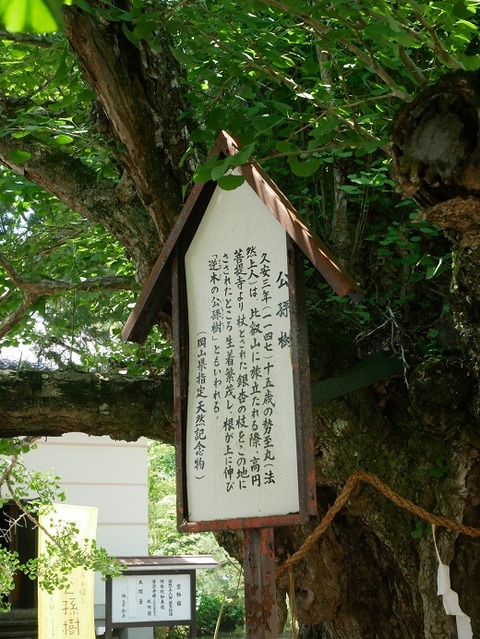 公孫樹
久安三年(一一四七)十五歳の勢至丸(法
然上人)は 比叡山に旅立たれる際、高円
菩提寺より杖とされた銀杏の杖をこの地に
さされたところ 生着繁茂し、根が上に伸び
「逆木の公孫樹」ともいわれる。
(岡山県指定 天然記念物)
宝物館
孫樹